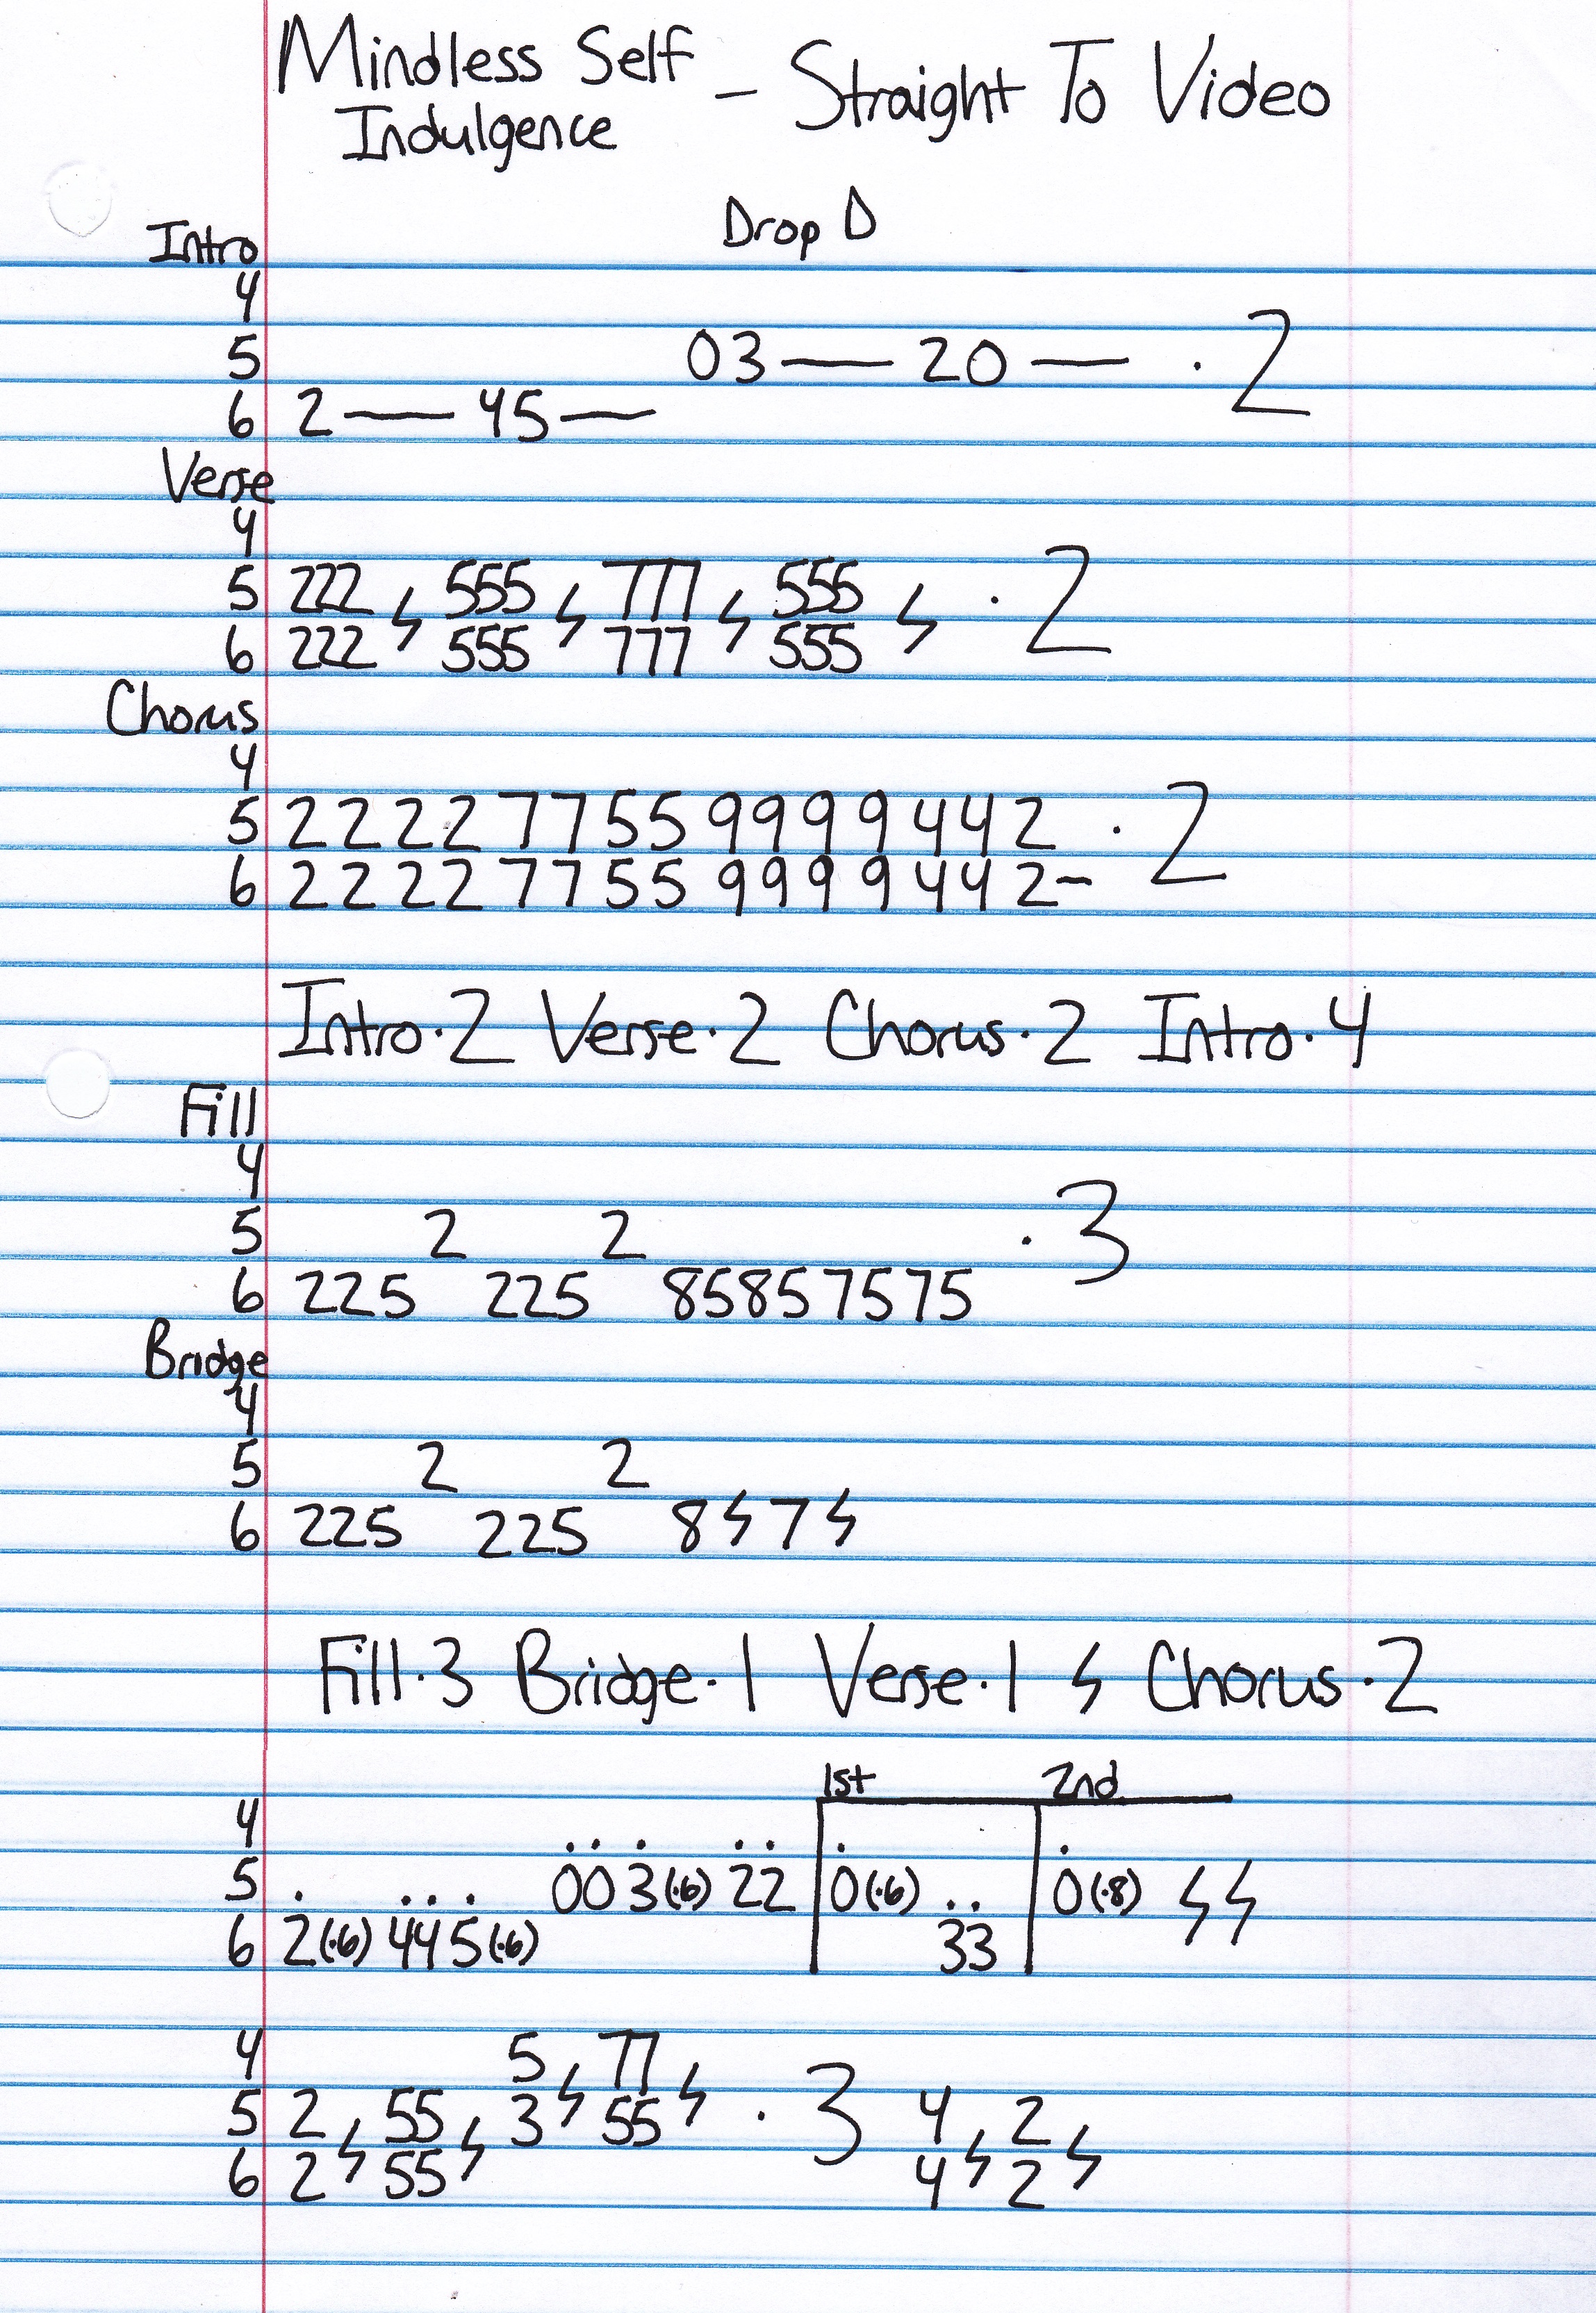 Mindless Self Indulgence – Straight To Video
Drop D
Intro
4
5 03 — 20 — · 2
6 2 — 45 —
Verse
4
5 222 ϟ 555 ϟ 777 ϟ 555 ϟ · 2
6 222 555 777 555
Chorus
4
5 2 2 2 2 7 7 5 5 9 9 9 9 4 4 2 · 2
6 2 2 2 2 7 7 5 5 9 9 9 9 4 4 2 -
Intro · 2 Verse · 2 Chorus · 2 Intro · 4
Fill
4
5 2 2 · 3
6 225 225 85857575
Bridge
4
5 2 2
6 225 225 8 ϟ 7 ϟ
Fill · 3 Bridge · 1 Verse · 1 ϟ Chorus · 2
1st 2nd
4
5 003(·6) 22 0(·6) 0(·8) ϟ ϟ
6 2(·6) 445(·6) 33
4 5 ϟ 77 ϟ
5 2 ϟ 55 ϟ 3 55 · 3 4 ϟ 2 ϟ
6 2 55 4 2